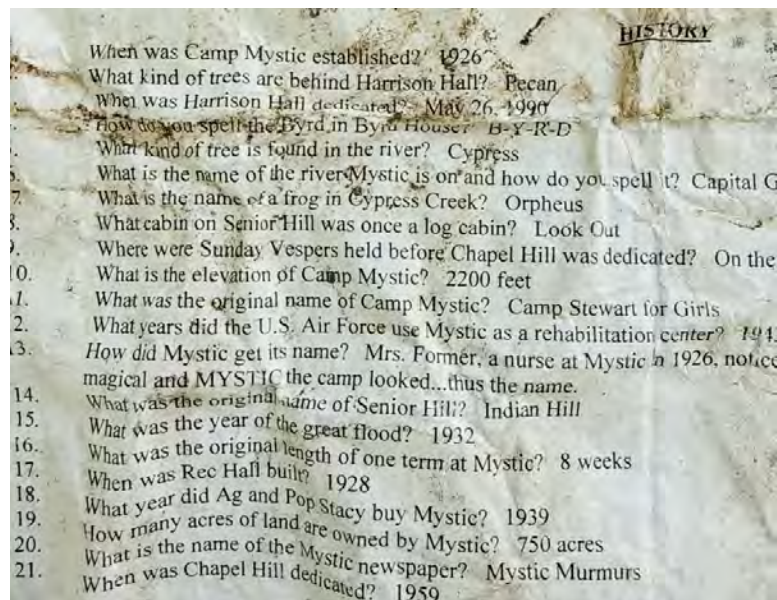 HISTORY
When was Camp Mystic established? 1926
What kind of trees are behind Harrison Hall? Pecan
When was Harrison Hall dedicated? May 26, 1990
How do you spell the Byrd in Byrd House? B-Y-R-D
What kind of tree is found in the river? Cypress
What is the name of the river Mystic is on and how do you spell it? Capital G
7. What is the name of a frog in Cypress Creek? Orpheus
8. What cabin on Senior Hill was once a log cabin? Look Out
9. Where were Sunday Vespers held before Chapel Hill was dedicated? On the
10. What is the elevation of Camp Mystic? 2200 feet
11. What was the original name of Camp Mystic? Camp Stewart for Girls
2. What years did the U.S. Air Force use Mystic as a rehabilitation center? 194
13. How did Mystic get its name? Mrs. Former, a nurse at Mystic in 1926, notice
magical and MYSTIC the camp looked...thus the name.
14. What was the original name of Senior Hill? Indian Hill
15. What was the year of the great flood? 1932
16. What was the original length of one term at Mystic? 8 weeks
17. When was Rec Hall built? 1928
18. What year did Ag and Pop Stacy buy Mystic? 1939
19. How many acres of land are owned by Mystic? 750 acres
20. What is the name of the Mystic newspaper? Mystic Murmurs
21. When was Chapel Hill dedicated? 1959